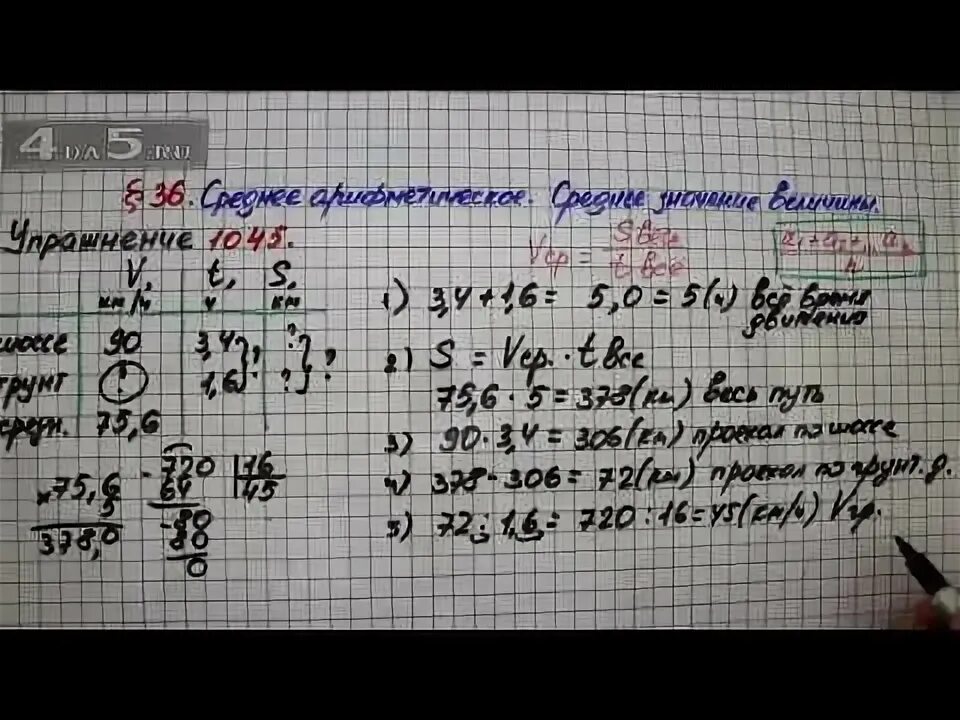 4 DЛЯ 5.RU
§ 36. Среднее арифметическое. Среднее значение величины.
Упражнение 1045.
Vср = Sвсе / tвсе
V, км/ч t, ч S, км
шоссе 90 3,4 } ? ? } ?
грунт ? 1,6 ?
средн. 75,6
1) 3,4 + 1,6 = 5,0 = 5 (ч) всё время движения
2) S = Vср. · t все
75,6 · 5 = 378 (км) весь путь
3) 90 · 3,4 = 306 (км) проехал по шоссе
4) 378 - 306 = 72 (км) проехал по грунт. д.
5) 72 : 1,6 = 720 : 16 = 45 (км/ч) Vгр.
× 75,6
5
378,0
- 720 | 16
64 45
- 80
80
0